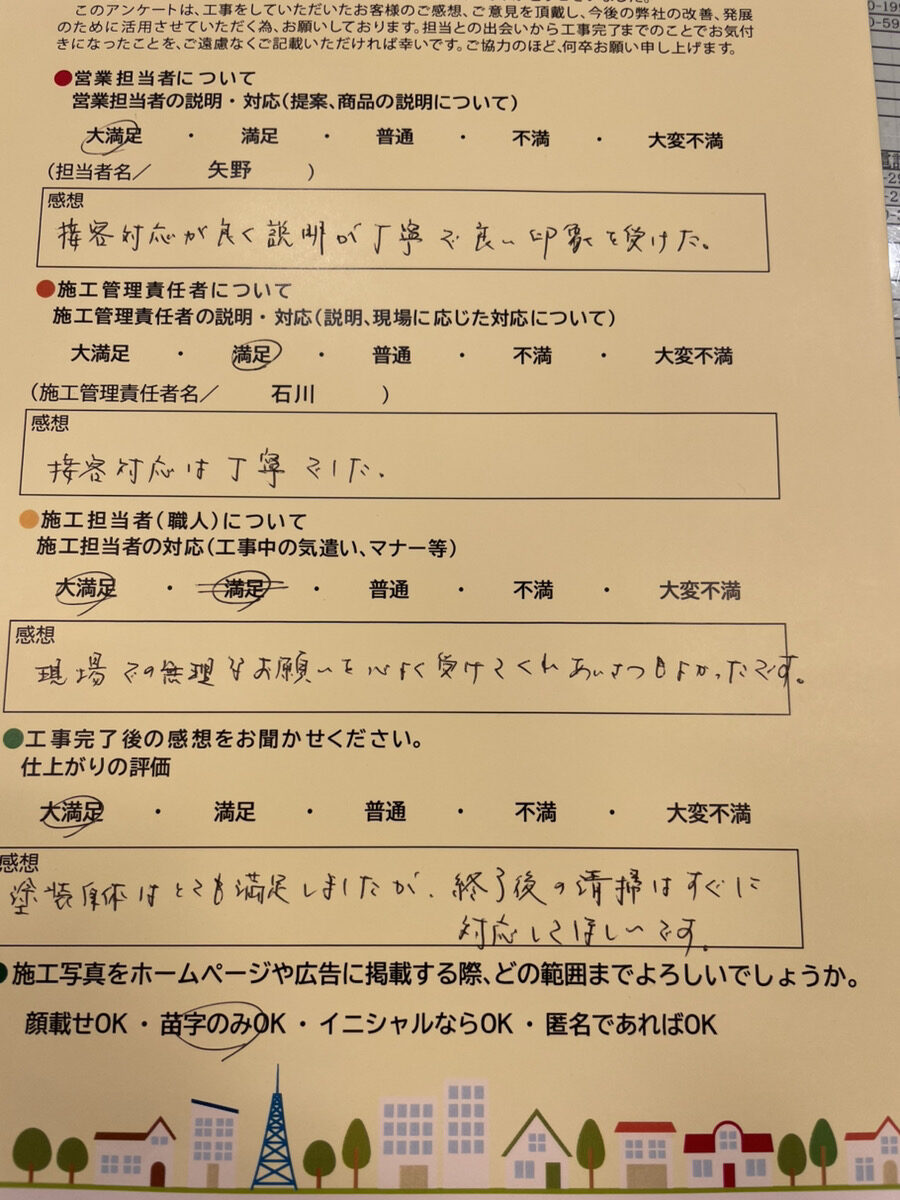 このアンケートは、工事をしていただいたお客様のご感想、ご意見を頂戴し、今後の弊社の改善、発展
のために活用させていただく為、お願いしております。担当との出会いから工事完了までのことでお気付
きになったことを、ご遠慮なくご記載いただければ幸いです。ご協力のほど、何卒お願い申し上げます。
●営業担当者について
営業担当者の説明・対応(提案、商品の説明について)
大満足 ・ 満足 ・ 普通 ・ 不満 ・ 大変不満
(担当者名/ 矢野 )
感想
接客対応が良く説明が丁寧で良い印象を受けた。
●施工管理責任者について
施工管理責任者の説明・対応(説明、現場に応じた対応について)
大満足 ・ 満足 ・ 普通 ・ 不満 ・ 大変不満
(施工管理責任者名/ 石川 )
感想
接客対応は丁寧でした.
●施工担当者(職人)について
施工担当者の対応(工事中の気遣い、マナー等)
大満足 ・ 満足 ・ 普通 ・ 不満 ・ 大変不満
感想
現場での無理なお願いを心よく受けてくれあいさつもよかったです。
●工事完了後の感想をお聞かせください。
仕上がりの評価
大満足 ・ 満足 ・ 普通 ・ 不満 ・ 大変不満
感想
塗装自体はとても満足しましたが、終了後の清掃はすぐに
対応してほしいです。
●施工写真をホームページや広告に掲載する際、どの範囲までよろしいでしょうか。
顔載せOK・苗字のみOK・イニシャルならOK・匿名であればOK